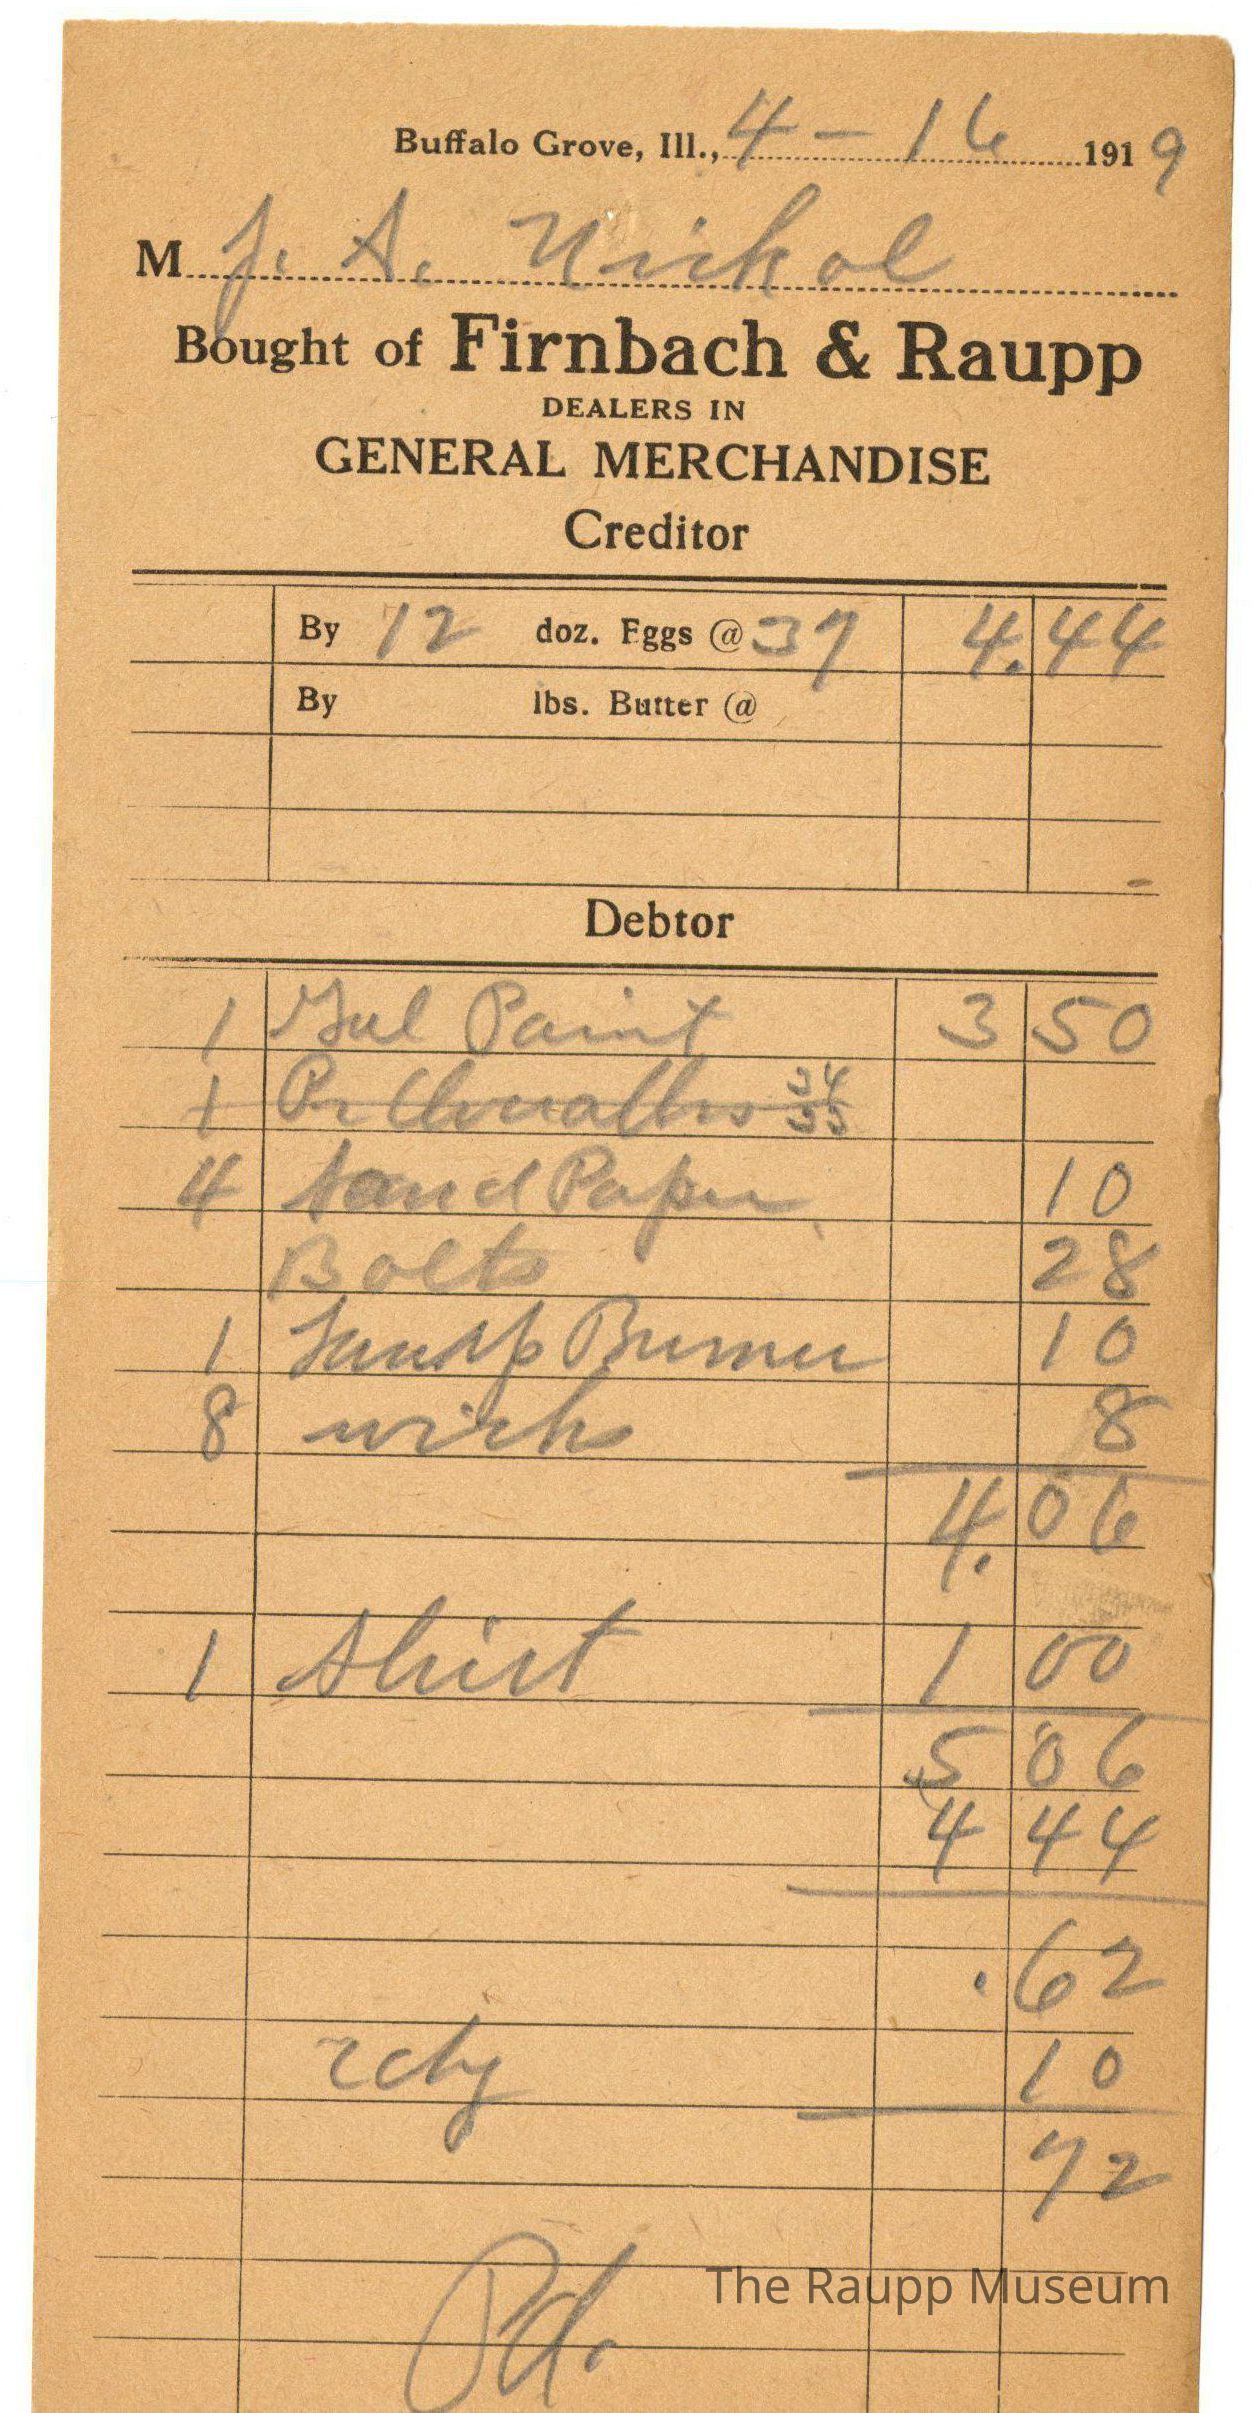 Buffalo Grove, Ill., 4 - 16 1919
M J. A. Nickol
Bought of Firnbach & Raupp
DEALERS IN
GENERAL MERCHANDISE
Creditor
By 12 doz. Eggs @ 37 4.44
By lbs. Butter @
Debtor
1 Gal Paint 3 50
1 Pr 34 33
4 Sand Paper 10
Bolts 28
1 Lamp Burner 10
8 wicks 8
4.06
1 Shirt 1 00
5 06
4 44
.62
10
72
Pd.
The Raupp Museum